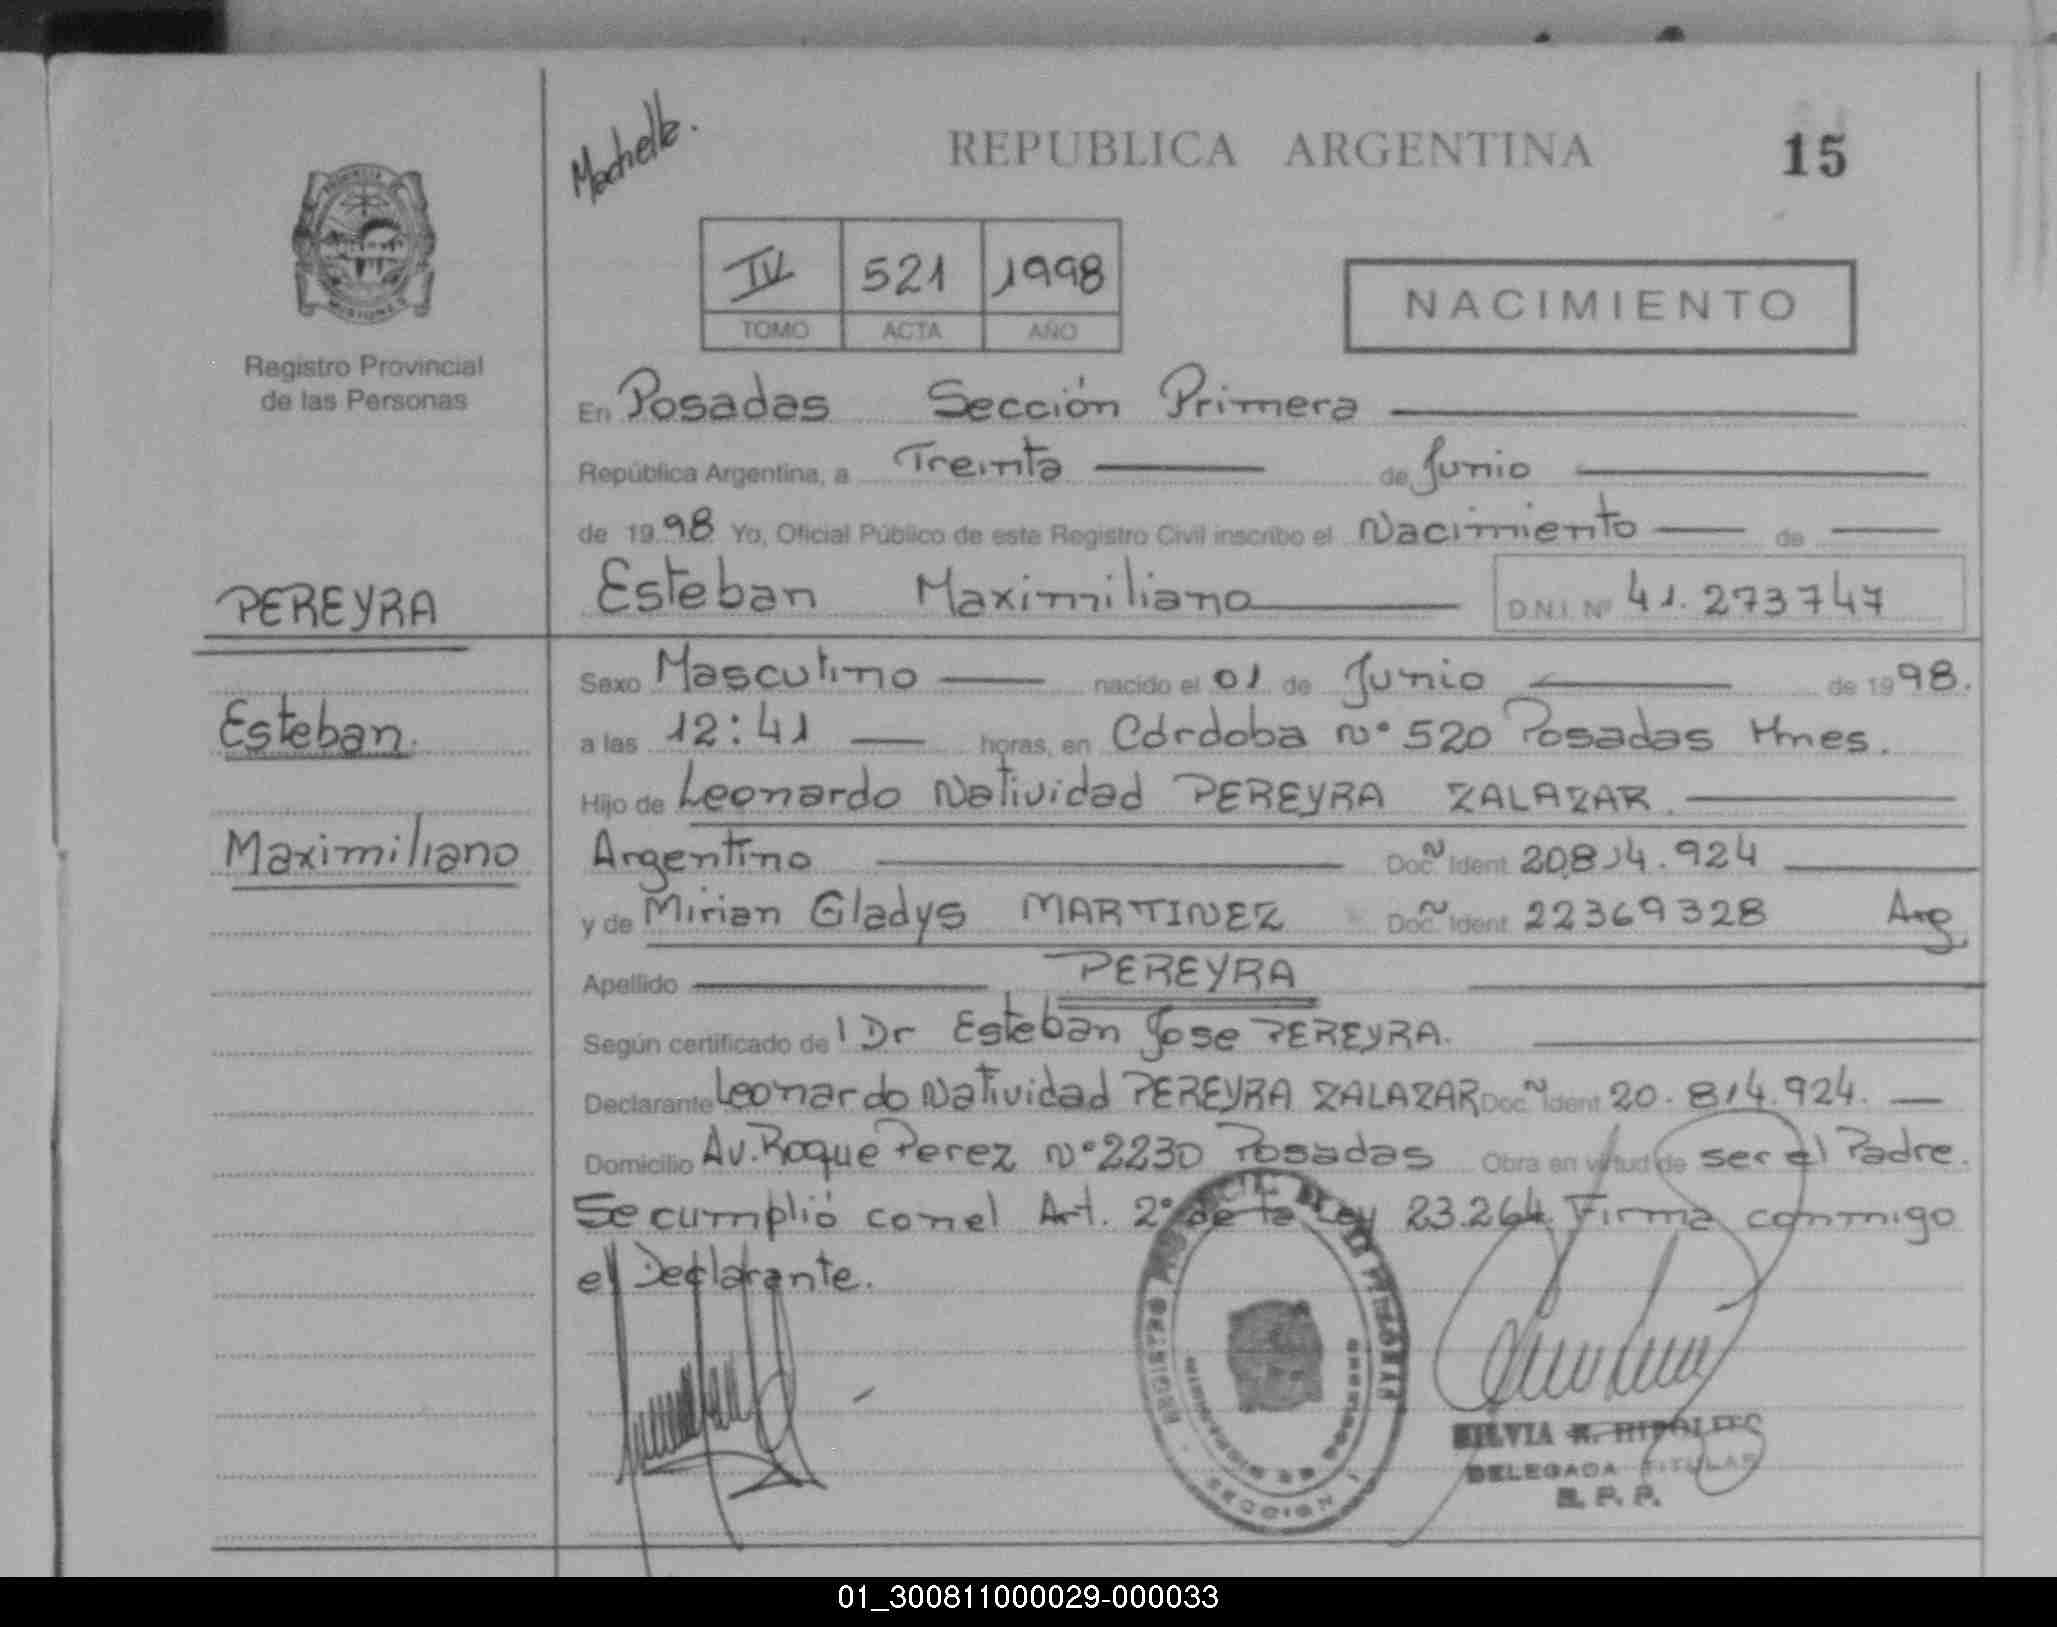 Machelle.
REPUBLICA ARGENTINA
15
PROVINCIA DE MISIONES
Registro Provincial
de las Personas
IV 521 1998
TOMO ACTA AÑO
NACIMIENTO
En Posadas Sección Primera
República Argentina, a Treinta de Junio
de 1998 Yo, Oficial Público de este Registro Civil inscribo el Nacimiento de
PEREYRA
Esteban Maximiliano D.N.I. Nº 41.273747
Sexo Masculino nacido el 01 de Junio de 1998.
Esteban.
a las 12:41 horas, en Córdoba nº 520 Posadas Mnes.
Hijo de Leonardo Natividad PEREYRA ZALAZAR.
Maximiliano
Argentino Doc. Ident 20.814.924
y de Mirian Gladys MARTINEZ Doc. Ident 22369328 Arg
Apellido PEREYRA
Según certificado del Dr Esteban Jose PEREYRA.
Declarante Leonardo Natividad PEREYRA ZALAZAR Doc. Ident 20.814.924.
Domicilio Av. Roque Perez nº 2230 Posadas Obra en virtud de ser el Padre.
Se cumplió con el Art. 2º de la Ley 23.264. Firma conmigo
el Declarante.
SECCION 1
SILVIA R.
DELEGADA TITULAR
R. P. P.
01_300811000029-000033